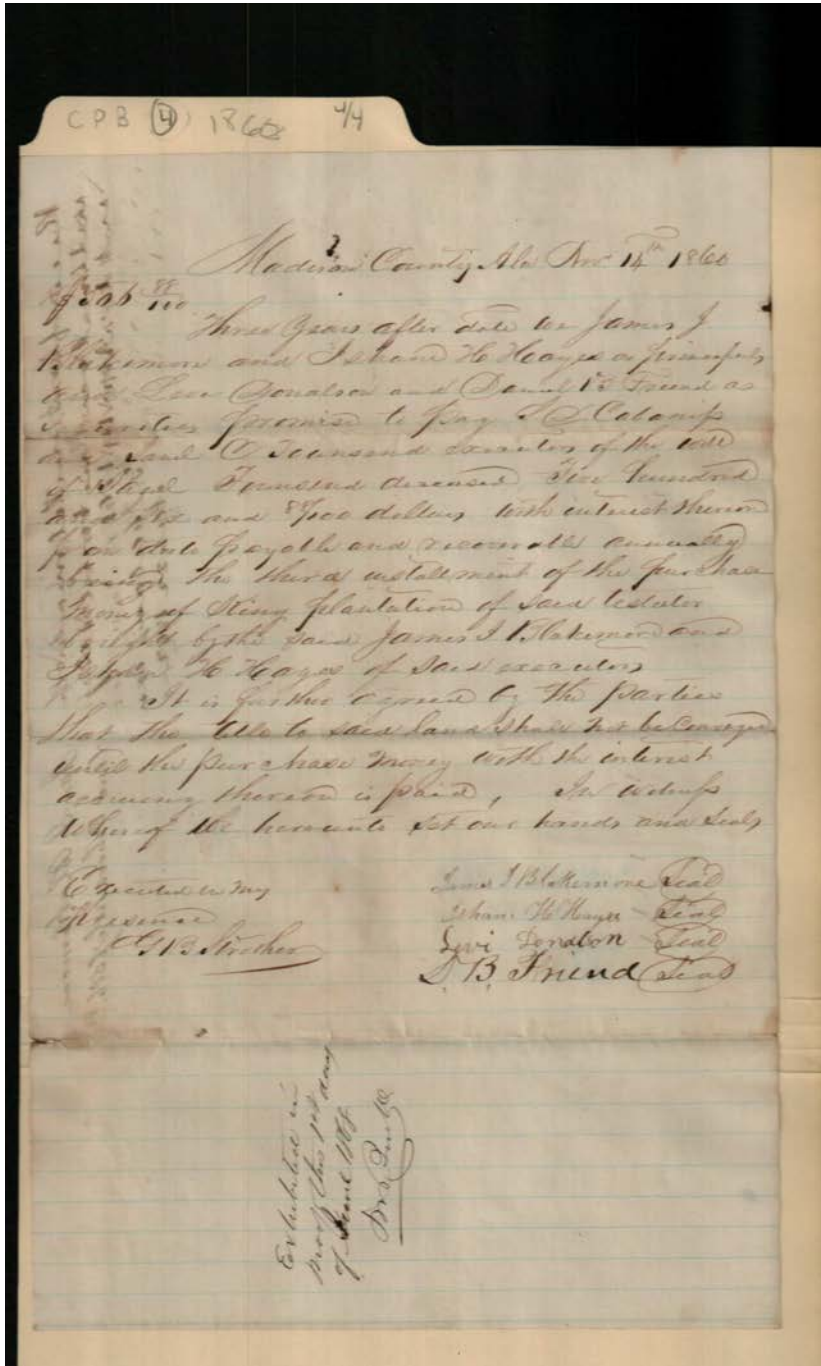 CPB (4) 1860 4/4
Madison County Ala Nov 14th 1860
88/100
Three Years after date we James J
Blakemore and Isham H Hayes as principals
and Levi Donalson and Daniel B Friend as
securities promise to pay S D Cabaniss
and Saml C Townsend executors of the will
of Saml Townsend deceased Two hundred
and six and 88/100 dollars with interest thereon
from date payable and recoverable annually
being the third installment of the purchase
money of King plantation of said testator
bought by the said James J Blakemore and
Isham H Hayes of said executors
It is further agreed by the parties
that the title to said land shall not be conveyed
until the purchase money with the interest
accruing thereon is paid, In witness
Whereof We hereunto set our hands and seals
Executed in my
presence
G B Strother
James J Blakemore Seal
Isham H Hayes Seal
Levi Donalson Seal
D. B. Friend Seal
Exhibited in
proof this 1st day
of June 1868